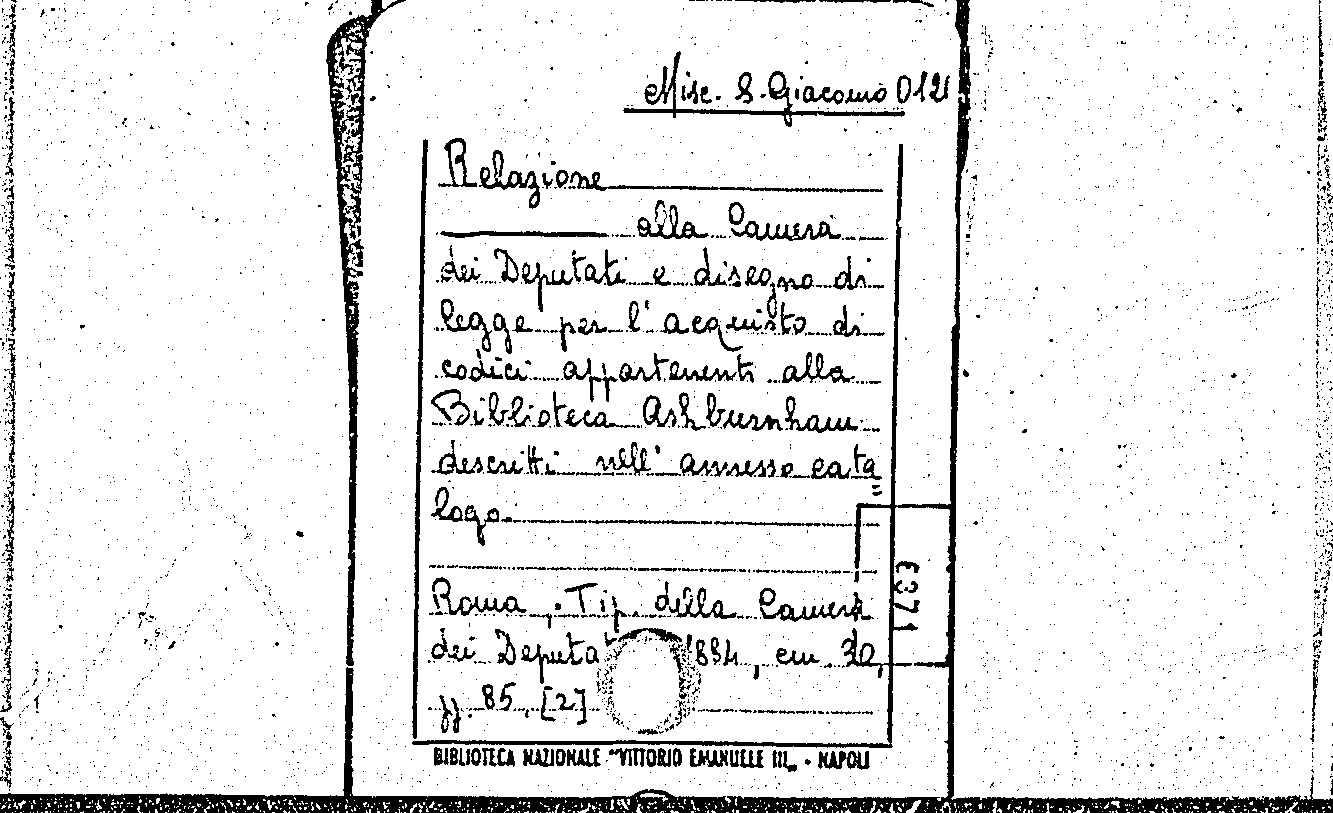 Misc. S. Giacomo 012
Relazione
alla Camera
dei Deputati e disegno di
legge per l'acquisto di
codici appartenenti alla
Biblioteca Ashburnham
descritti nell'annesso cata
logo.
Roma, Tip. della Camera
dei Deputa 1884, cm 30,
pp. 85, [2]
BIBLIOTECA NAZIONALE "VITTORIO EMANUELE III„ - NAPOLI